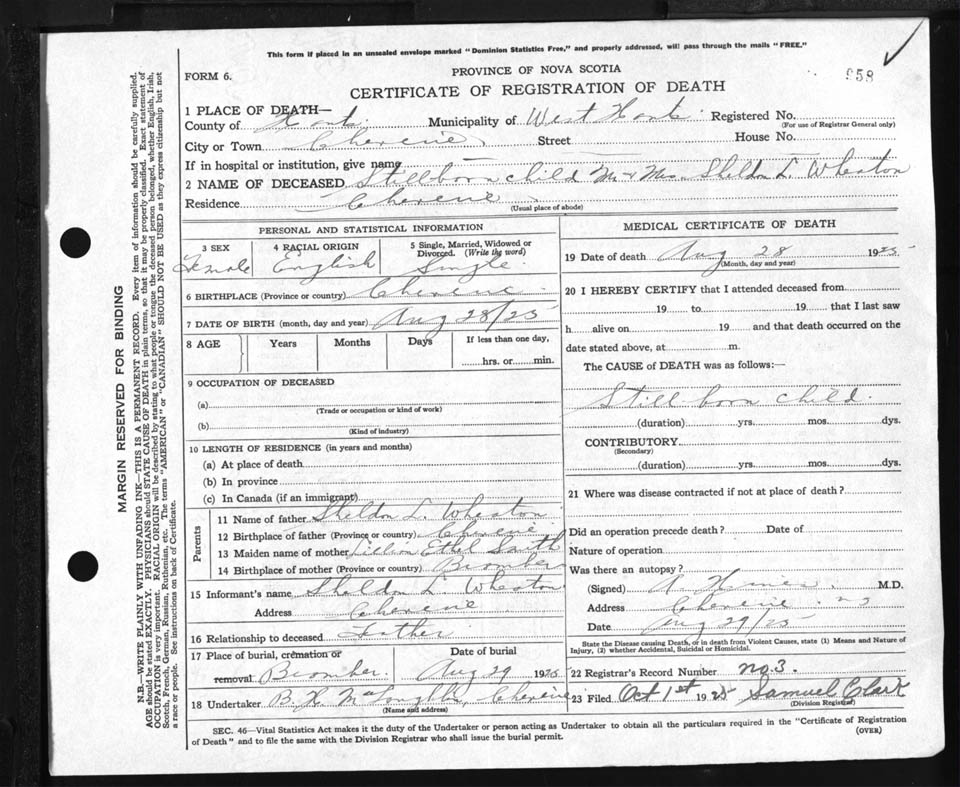 This form if placed in an unsealed envelope marked "Dominion Statistics Free," and properly addressed, will pass through the mails "FREE."
958
FORM 6.
PROVINCE OF NOVA SCOTIA
CERTIFICATE OF REGISTRATION OF DEATH
1 PLACE OF DEATH—
County of Hants Municipality of West Hants Registered No.
(For use of Registrar General only)
City or Town Cheverie Street House No.
If in hospital or institution, give name
2 NAME OF DECEASED Stillborn child Mr & Mrs Sheldon L. Wheaton
Residence Cheverie
(Usual place of abode)
PERSONAL AND STATISTICAL INFORMATION
3 SEX 4 RACIAL ORIGIN 5 Single, Married, Widowed or Divorced. (Write the word)
Female English Single
6 BIRTHPLACE (Province or country) Cheverie
7 DATE OF BIRTH (month, day and year) Aug 28/25
8 AGE Years Months Days If less than one day,
hrs. or min.
9 OCCUPATION OF DECEASED
(a)
(Trade or occupation or kind of work)
(b)
(Kind of industry)
10 LENGTH OF RESIDENCE (in years and months)
(a) At place of death
(b) In province
(c) In Canada (if an immigrant)
Parents
11 Name of father Sheldon L. Wheaton
12 Birthplace of father (Province or country) Cheverie
13 Maiden name of mother Lillian Ethel Smith
14 Birthplace of mother (Province or country)
15 Informant's name Sheldon L. Wheaton
Address Cheverie
16 Relationship to deceased Father
17 Place of burial, cremation or removal Date of burial
Aug 29 1925
18 Undertaker B. H. Cheverie
(Name and address)
MEDICAL CERTIFICATE OF DEATH
19 Date of death Aug 28 1925
(Month, day and year)
20 I HEREBY CERTIFY that I attended deceased from
19 to 19 that I last saw
h alive on 19 and that death occurred on the
date stated above, at m.
The CAUSE of DEATH was as follows:—
Still born child.
(duration) yrs. mos. dys.
CONTRIBUTORY
(Secondary)
(duration) yrs. mos. dys.
21 Where was disease contracted if not at place of death?
Did an operation precede death? Date of
Nature of operation
Was there an autopsy?
(Signed) M.D.
Address Cheverie NS
Date Aug 29/25
State the Disease causing Death, or in death from Violent Causes, state (1) Means and Nature of Injury, (2) whether Accidental, Suicidal or Homicidal.
22 Registrar's Record Number no 3.
23 Filed Oct 1st 1925 Samuel Clark
(Division Registrar)
SEC. 46—Vital Statistics Act makes it the duty of the Undertaker or person acting as Undertaker to obtain all the particulars required in the "Certificate of Registration
of Death" and to file the same with the Division Registrar who shall issue the burial permit.
(OVER)
MARGIN RESERVED FOR BINDING
N.B.—WRITE PLAINLY WITH UNFADING INK—THIS IS A PERMANENT RECORD. Every item of information should be carefully supplied.
AGE should be stated EXACTLY. PHYSICIANS should STATE CAUSE OF DEATH in plain terms, so that it may be properly classified. Exact statement of
OCCUPATION is very important. RACIAL ORIGIN will be described by stating to what people or tongue the deceased person belonged, whether English, Irish,
Scotch, French, German, Russian, Ruthenian, etc. The terms "AMERICAN" or "CANADIAN" SHOULD NOT BE USED as they express citizenship but not
a race or people. See instructions on back of Certificate.